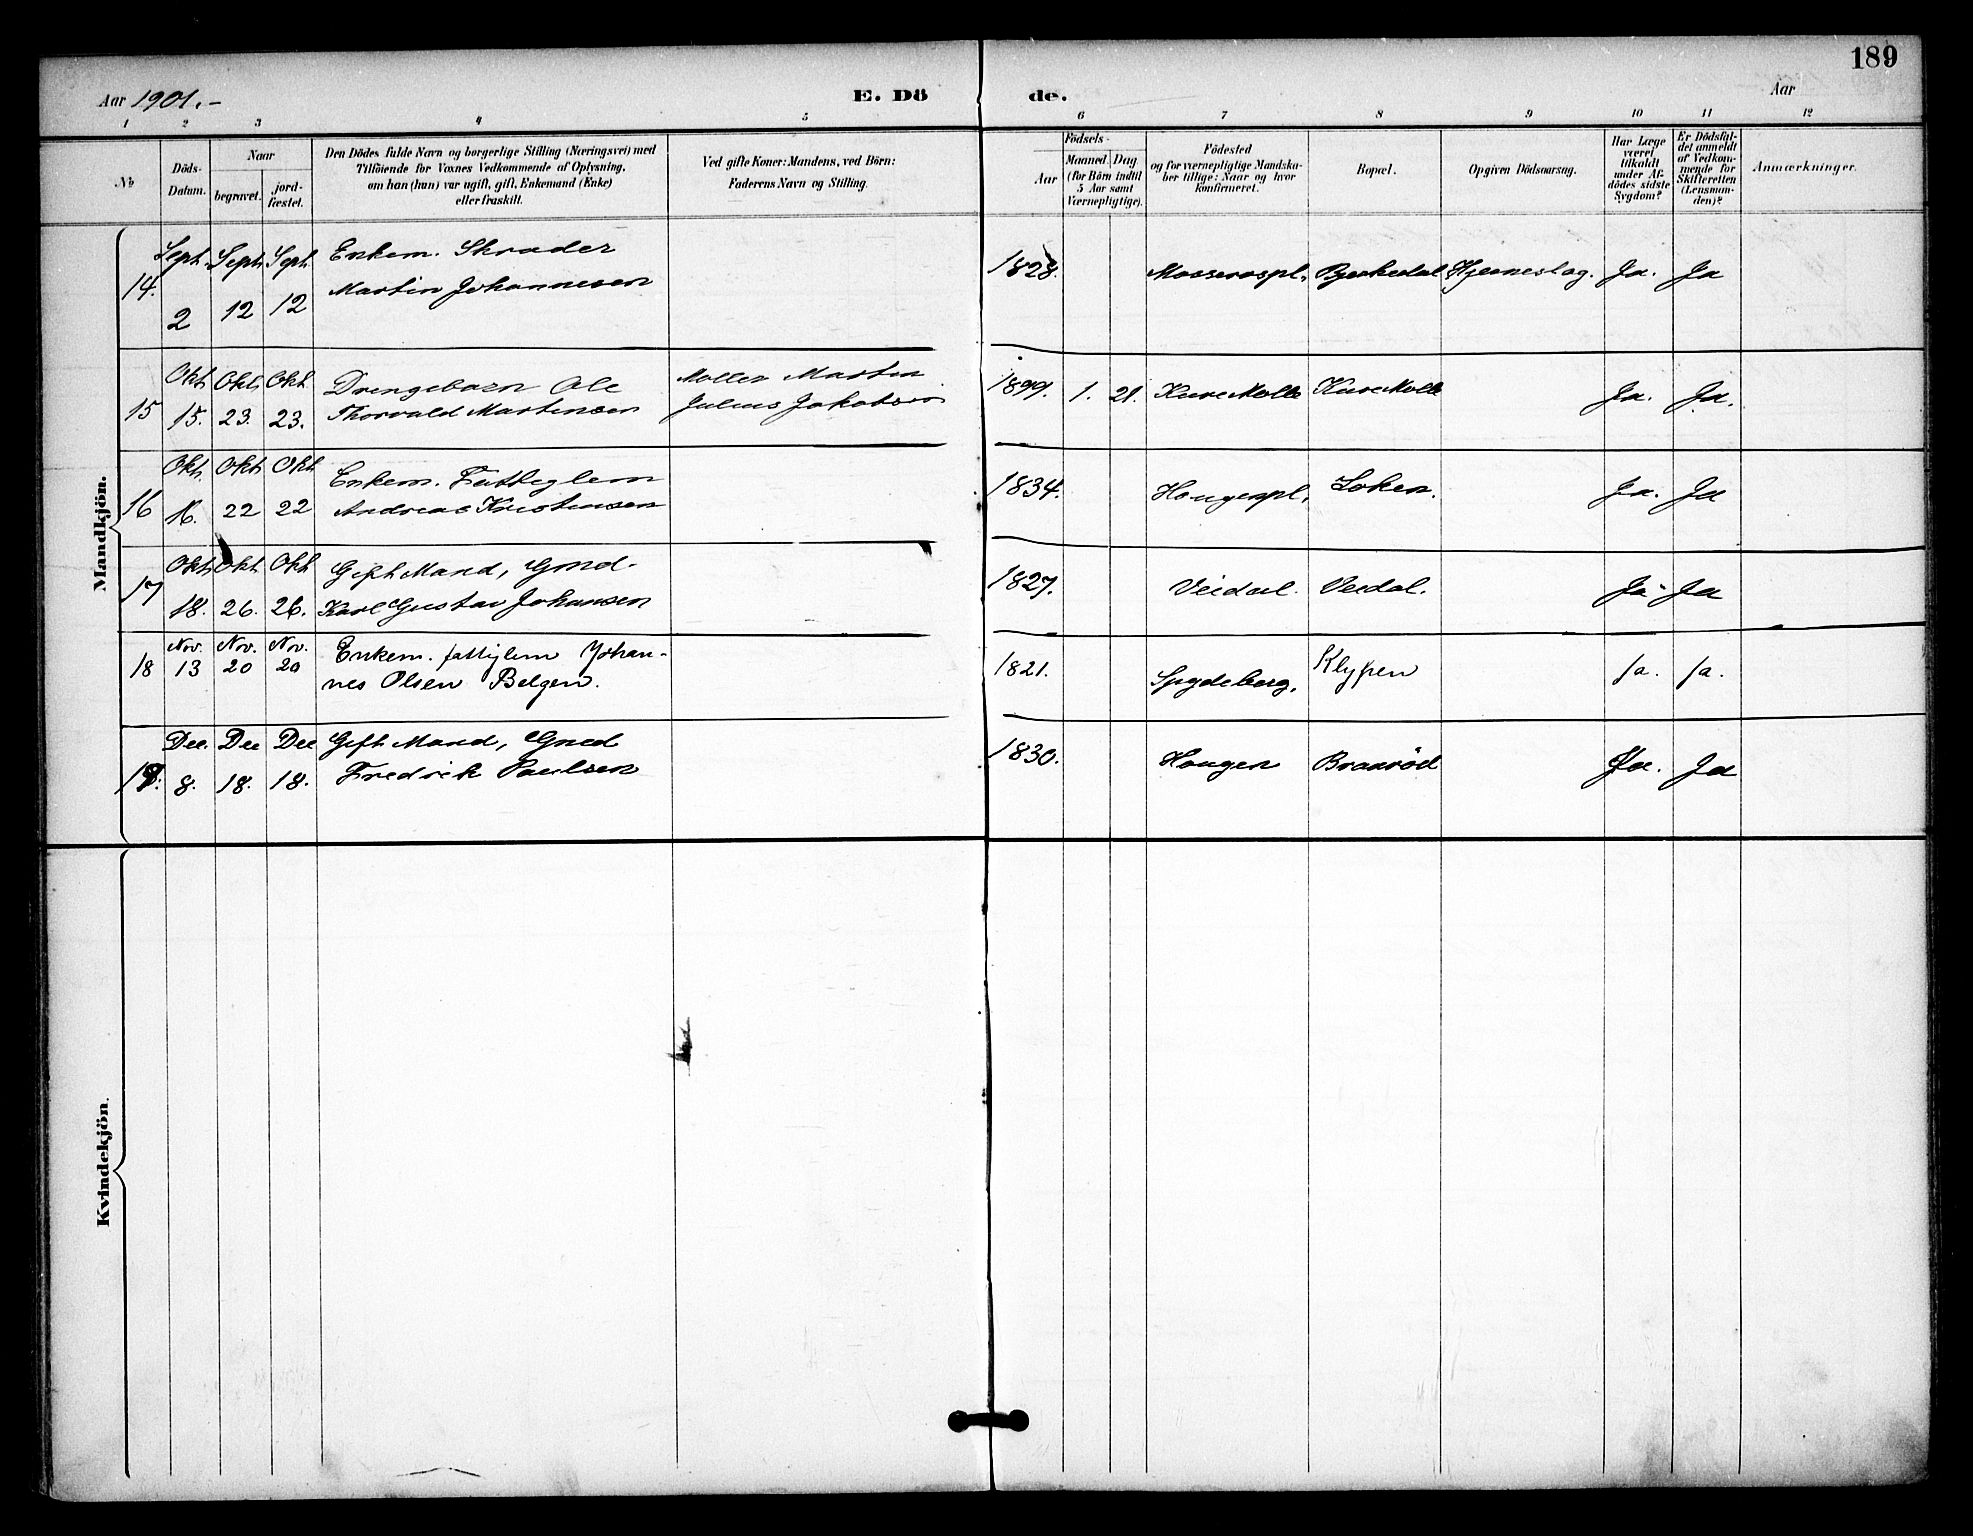 189
Aar 1901.-
E. Dö de.
Aar
1 2 3 4 5 6 7 8 9 10 11 12
№
Döds-Datum.
Naar
begravet.
jord-fæstet.
Den Dödes fulde Navn og borgerlige Stilling (Næringsvei) med
Tilföiende for Voxnes Vedkommende af Oplysning,
om han (hun) var ugift, gift, Enkemand (Enke)
eller fraskilt.
Ved gifte Koner: Mandens, ved Börn:
Faderens Navn og Stilling.
Födsels-
Aar
Maaned. Dag
(for Börn indtil
5 Aar samt
Værnepligtige).
Födested
og for værnepligtige Mandska-
ber tillige: Naar og hvor
konfirmeret.
Bopæl.
Opgiven Dödsaarsag.
Har Læge
været
tilkaldt
under Af-
dödes sidste
Sygdom?
Er Dödsfal-
det anmeldt
af Vedkom-
mende for
Skifteretten
(Lensman-
den)?
Anmærkninger.
Mandkjön.
14. Sept. 2 Sept. 12 Sept. 12 Enkem. Skræder
Martin Johannesen 1828. Mosserospl. Bjerkedal Hjerneslag. Ja. Ja
15 Okt. 15. Okt. 23. Okt. 23. Drengebarn Ole
Thorvald Martinsen Møller Martin
Julius Jakobsen 1899. 1. 21. Kure Mølle Kure Mølle Ja. Ja.
16 Okt. 16. Okt. 22 Okt 22 Enkem. Fattiglem
Andreas Kristensen 1834. Haugerspl. Løken. Ja. Ja
17 Okt. 18. Okt. 26. Okt 26. Gift Mand, Gmd.
Karl Gustav Johansen 1827. Veidal. Veidal. Ja Ja
18 Nov. 13 Nov. 20 Nov. 20 Enkem. fattiglem Johan-
nes Olsen Belgen. 1821. Spydeberg. Klypen ja. ja.
19. Dec. 8. Dec 18. Dec 18. Gift Mand, Gmd
Fredrik Paulsen 1830. Haugen Brarød Ja. Ja
Kvindekjön.